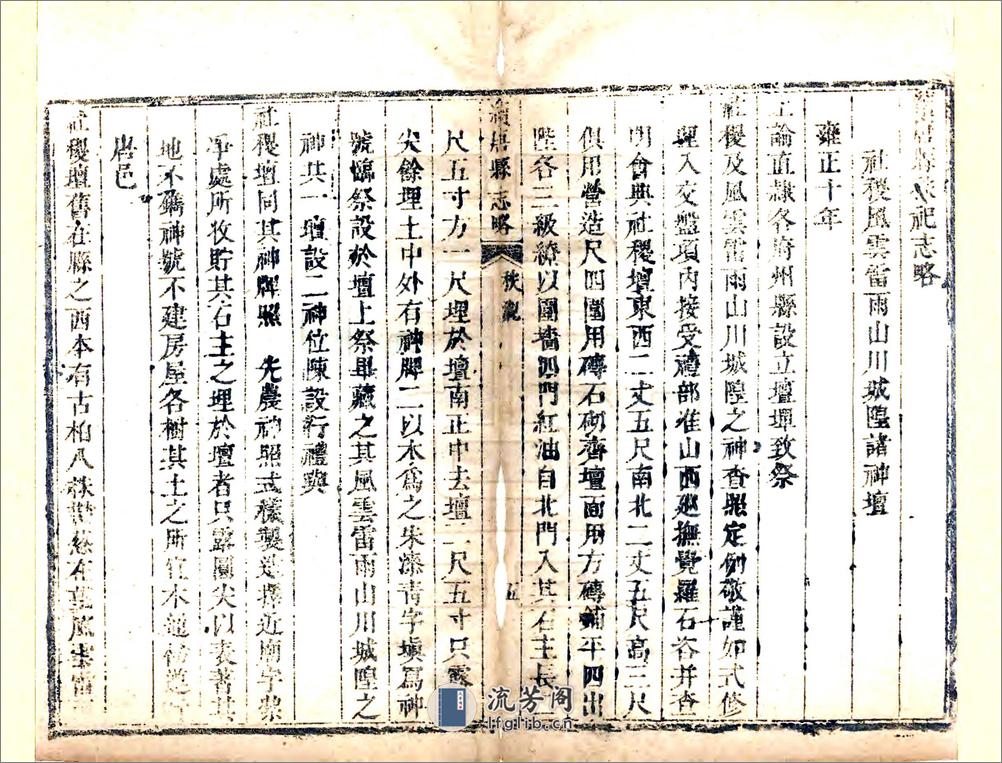 祀志略
社稷風雲雷雨山川城隍諸神壇
雍正十年
上諭直隸各府州縣設立壇壝致祭
社稷及風雲雷雨山川城隍之神查照定例敬謹如式修
理入交盤項內接受禮部准山西廵撫覺羅石咨并查
明會典社稷壇東西二丈五尺南北二丈五尺高三尺
俱用營造尺四圍用磚石砌齊壇面用方磚鋪平四出
陛各三級繚以圍墻四門紅油自北門入其石主長
續唐縣志略
秩祀
五
尺五寸方一尺埋於壇南正中去壇二尺五寸只露
尖餘埋土中外有神牌二以木爲之朱漆青字塡爲神
號臨祭設於壇上祭畢藏之其風雲雷雨山川城隍之
神共一壇設三神位陳設行禮與
社稷壇同其神牌照 先農神照式樣製造擇近廟宇潔
凈處所收貯其石主之埋於壇者只露圓尖以表著其
地不鐫神號不建房屋各樹其土之所宜木
唐邑
社稷壇舊在縣之西本有古柏八株 風雲雷
流芳阁
lfglib.cn